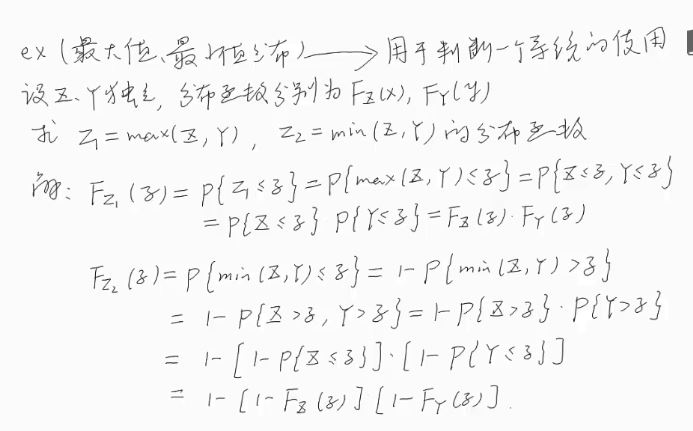 ex (最大值、最小值分布) ⟶ 用于判断一个系统的使用
设X、Y独立, 分布函数分别为 F_X(x), F_Y(y)
求 Z₁=max(X,Y), Z₂=min(X,Y) 的分布函数
解: F_Z₁(z)=P{Z₁≤z}=P{max(X,Y)≤z}=P{X≤z,Y≤z}
=P{X≤z} P{Y≤z}=F_X(z)·F_Y(z)
F_Z₂(z)=P{min(X,Y)≤z}=1-P{min(X,Y)>z}
= 1-P{X>z, Y>z}=1-P{X>z}·P{Y>z}
= 1-[1-P{X≤z}]·[1-P{Y≤z}]
= 1-[1-F_X(z)][1-F_Y(z)].